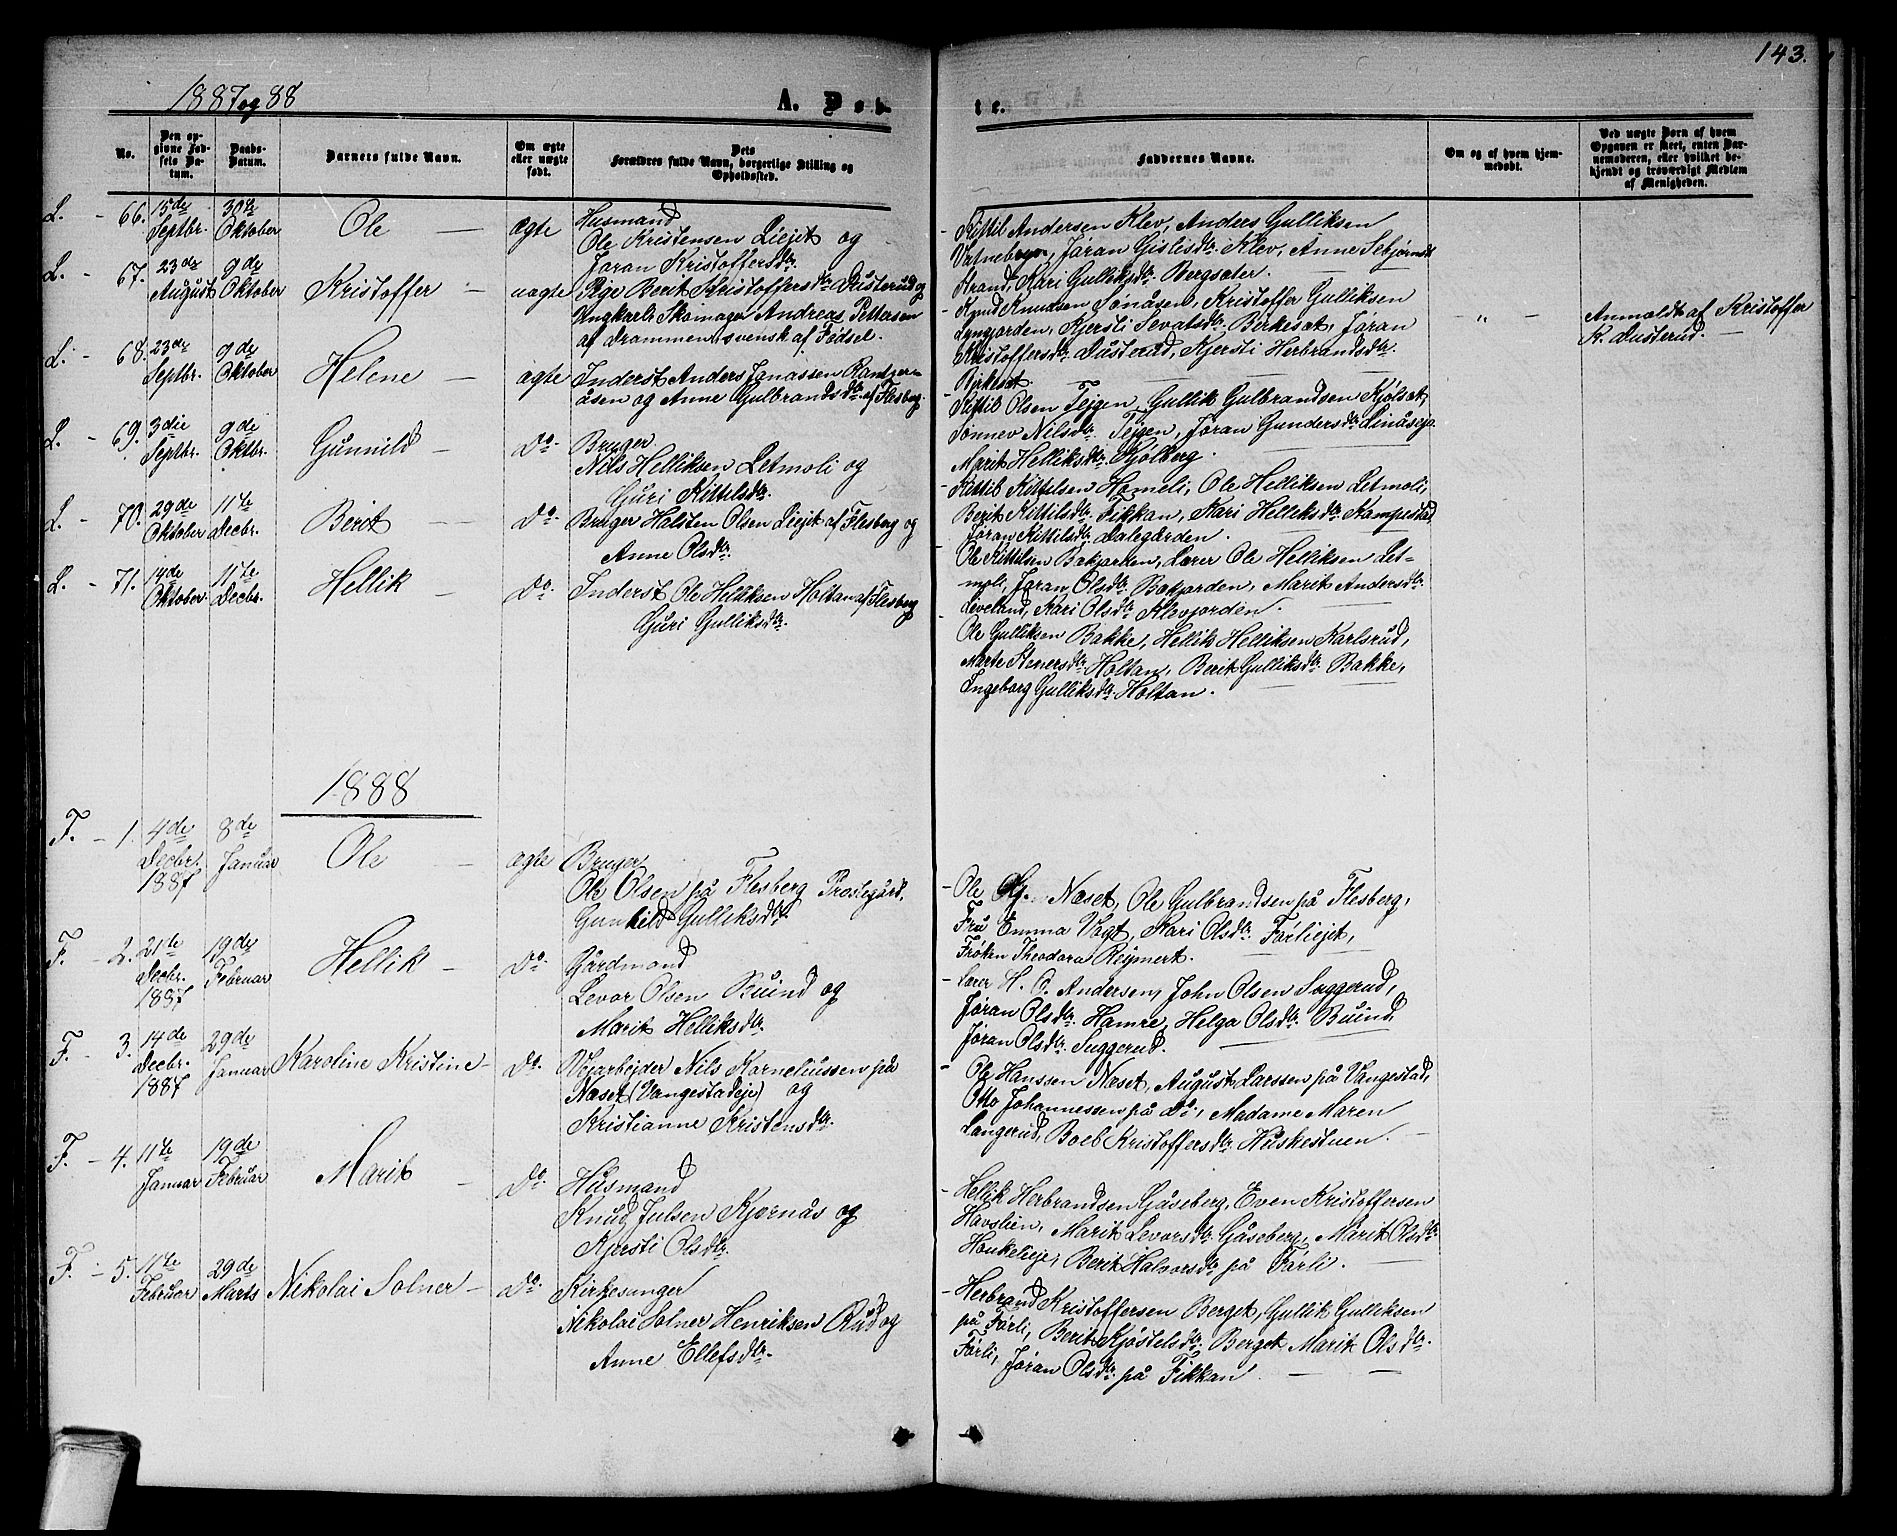 143.
1887 og 88
A. Døb-
te.
No.
Den op-
givne Fød-
sels Da-
tum.
Daabs-
Datum.
Barnets fulde Navn.
Om ægte
eller uægte
født.
Dets
Forældres fulde Navn, borgerlige Stilling og
Opholdssted.
Faddernes Navne.
Om og af hvem hjem-
medøbt.
Ved uægte Barn af hvem
Opgaven er skeet, enten Bar-
nemoderen, eller hvilket be-
kjendt og troværdigt Medlem
af Menigheden.
L. - 66. 15de Septbr. 30te Oktober Ole — ægte
Husmand
Ole Kristensen Liejet og
Jøran Kristoffersdtr.
- Kittil Andersen Klev, Anders Gulliksen
Jøran Gislesdtr. Klev, Anne Sebjørnsdtr
Strand, Kari Gulliksdtr. Bergsæter.
L. - 67. 23de August 9de Oktober Kristoffer — uægte
Pige Berit Kristoffersdtr. Dusterud og
Ungkarl Skomager Andreas Pettersen
af Drammen, svensk af Fødsel.
- Knud Knudsen Kristoffer Gulliksen
Kjersti Sevatsdtr. Birkesæt, Jøran
Kristoffersdtr. Dusterud, Kjersti Herbrandsdtr.
Birkesæt.
- „ -
Anmeldt af Kristoffer
K. Dusterud. —
L. - 68. 23de Septbr. 9de Oktober Helene — ægte
Inderst Anders Jonassen
åsen og Anne Gulbrandsdtr. af Flesberg.
- Kittil Olsen Tejgen, Gullik Gulbrandsen Kjølsæt,
Sønnev Nilsdtr. Tejgen, Jøran Gundersdtr.
Marit Helliksdtr. Kjølberg.
L. - 69. 3die Septbr. 9de Oktbr. Gunnild — Do.
Bruger
Nils Helliksen Letmoli og
Guri Kittilsdtr.
- Kittil Kittilsen Homeli, Ole Helliksen Letmoli,
Berit Kittilsdtr. Fikkan, Kari Helliksdtr. Kampestad
Jøran Kittilsdtr. Dalegården.
L. - 70. 29de Oktober 11te Decbr. Berit — Do.
Bruger Halsten Olsen Liejet af Flesberg og
Anne Olsdtr.
- Ole Kittilsen Bakjorden, Lærer Ole Helliksen Let-
moli, Jøran Olsdtr. Bakjorden, Marit Andersdtr.
Leveland, Kari Olsdtr. Klevjorden.
L. - 71. 14de Oktober 11te Decbr. Hellik — Do.
Inderst Ole Helliksen Holtan af Flesberg
Guri Gulliksdtr.
- Ole Gulliksen Bakke, Hellik Helliksen Karlsrud,
Marte Stenersdtr. Holtan, Berit Gulliksdtr. Bakke,
Ingeborg Gulliksdtr. Holtan.
1888
F. - 1. 4de Decbr. 1887 8de Januar Ole — ægte
Bruger
Ole Olsen på Flesberg Prestegård,
Gunhild Gulliksdtr.
- Ole Næset, Ole Gulbrandsen på Flesberg,
Fru Emma Vogt, Kari Olsdtr. Førliejet,
Frøken Theodora Reymert.
F. - 2. 21te Decbr. 1887 19de Februar Hellik — Do.
Gårdmand
Levor Olsen Buind og
Marit Helliksdtr.
- Lærer H. O. Andersen, John Olsen Suggerud,
Jøran Olsdtr. Hamre, Helga Olsdtr. Buind
Jøran Olsdtr. Suggerud.
F. - 3. 14de Decbr. 1887 29de Januar Karoline Kristine — Do.
Vejarbejder Nils Korneliussen på
Næset (Vangestadeje) og
Kristianne Kristensdtr.
- Ole Hanssen Næset, August Larssen på Vangestad,
Otto Johannessen på Do., Madame Maren
Langerud, Boel Kristoffersdtr. Huskestuen.
F. - 4. 11te Januar 19de Februar Marit — Do.
Husmand
Knud Julsen Kjørnås og
Kjersti Olsdtr.
- Hellik Herbrandsen Gåseberg, Even Kristoffersen
Havslien, Marit Levorsdtr. Gåseberg, Marit Olsdtr
Haukelieje, Berit Halvorsdtr. på Førli.
F. - 5. 11te Februar 29de Marts Nikolai Solner — Do.
Kirkesanger
Nikolai Solner Henriksen Rud og
Anne Ellefsdtr.
- Herbrand Kristoffersen Berget, Gullik Gulliksen
på Førli, Berit Kjøstelsdtr. Berget, Marit Olsdtr.
Førli, Jøran Olsdtr. på Fikkan.